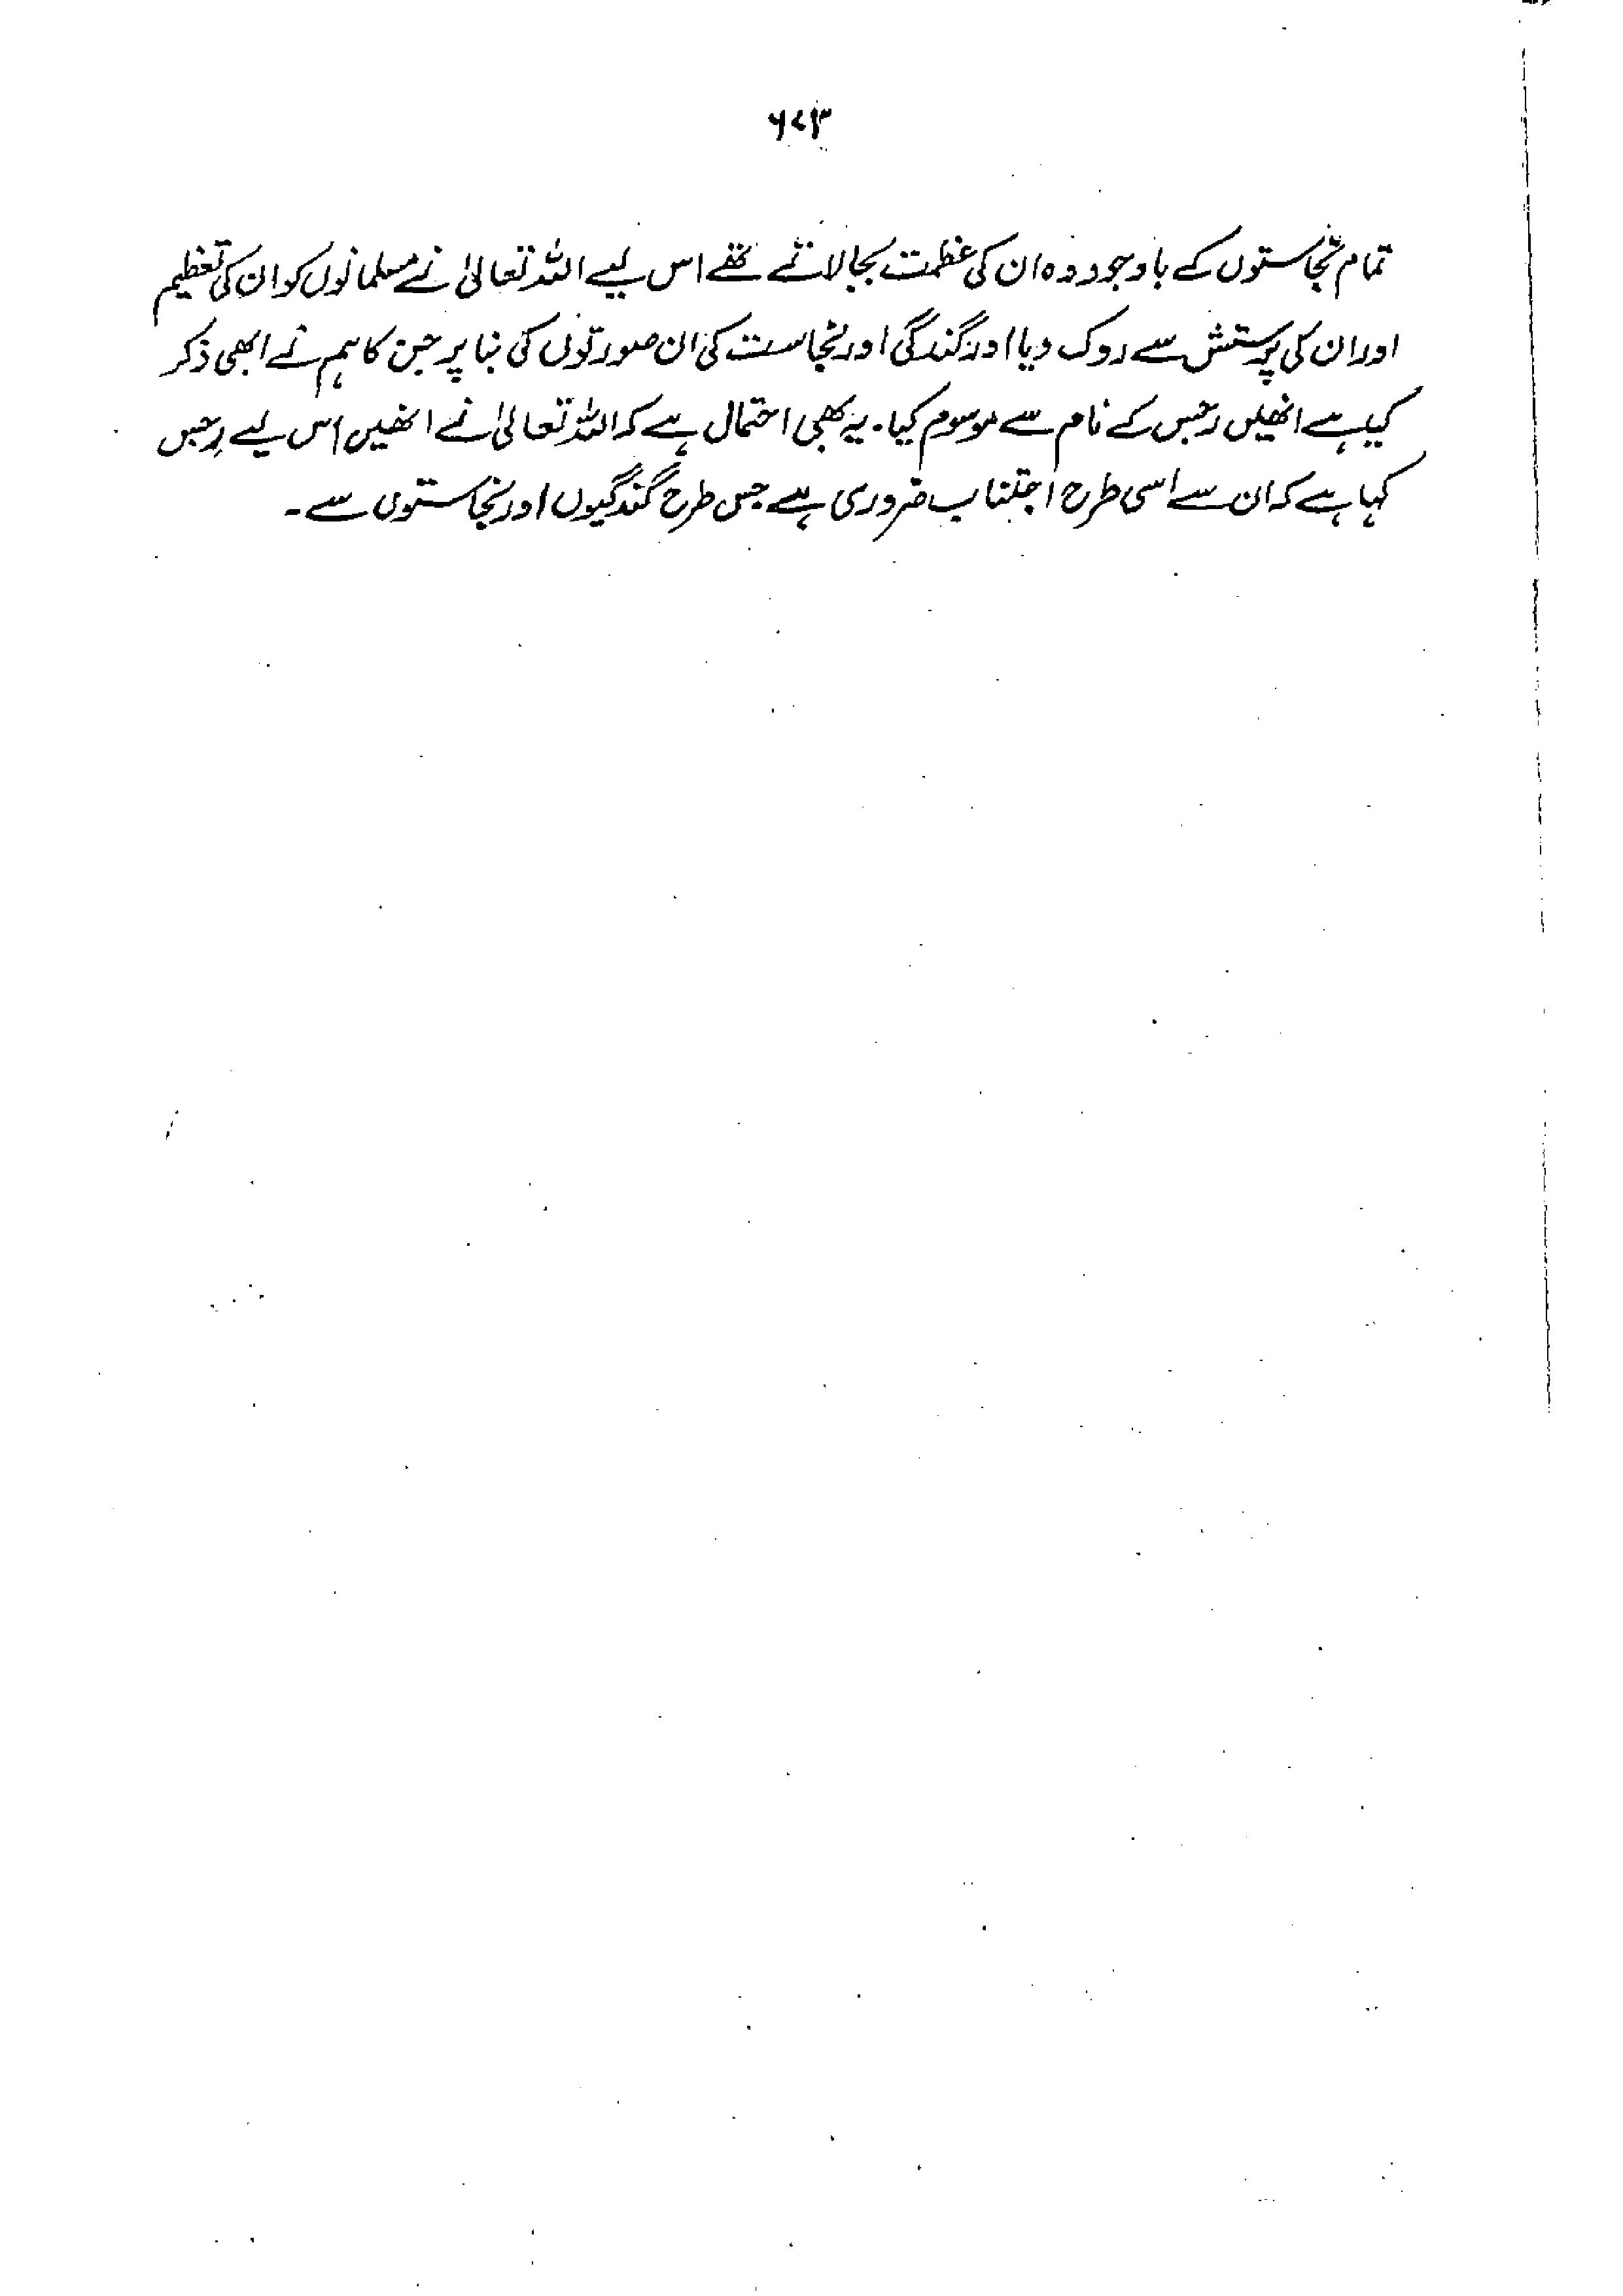 ۶۷۳
تمام نجاستوں کے باوجود وہ ان کی عظمت بجا لاتے تھے اس لیے اللہ تعالیٰ نے مسلمانوں کو ان کی تعظیم
اور ان کی پرستش سے روک دیا اور گندگی اور نجاست کی ان صورتوں کی بنا پر جن کا ہم نے ابھی ذکر
کیا ہے انھیں رجس کے نام سے موسوم کیا۔ یہ بھی احتمال ہے کہ اللہ تعالیٰ نے انھیں اس لیے رجس
کہا ہے کہ ان سے اسی طرح اجتناب ضروری ہے جس طرح گندگیوں اور نجاستوں سے۔